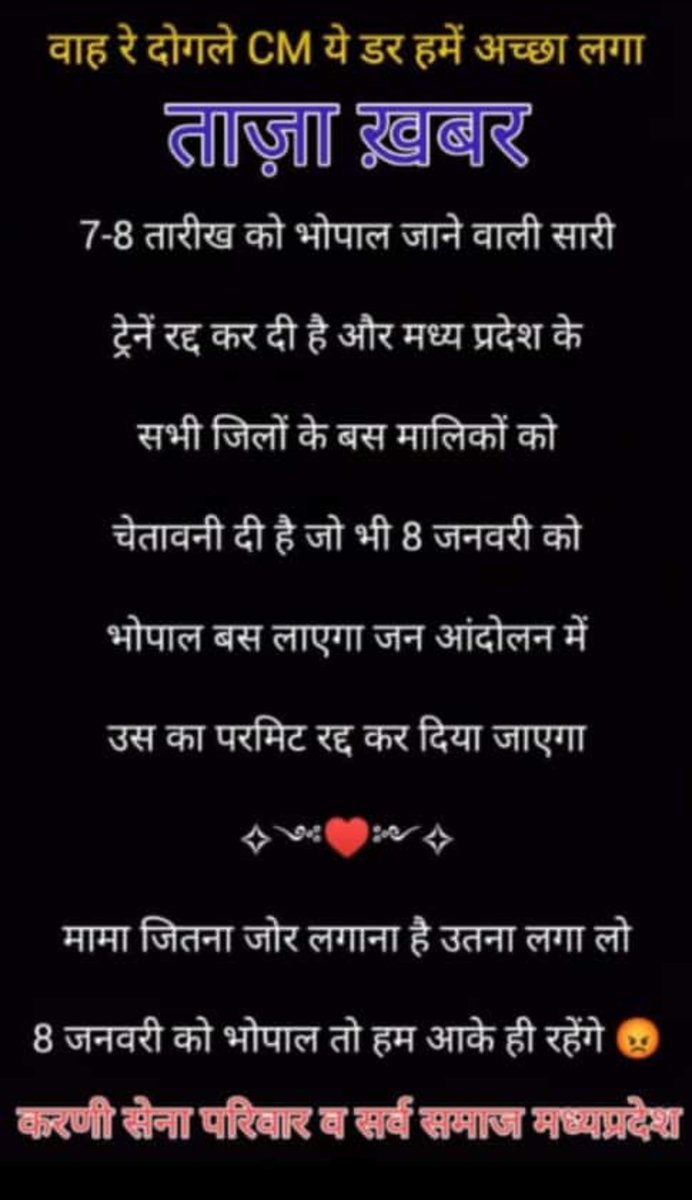 वाह रे दोगले CM ये डर हमें अच्छा लगा
ताज़ा ख़बर
7-8 तारीख को भोपाल जाने वाली सारी
ट्रेनें रद्द कर दी है और मध्य प्रदेश के
सभी जिलों के बस मालिकों को
चेतावनी दी है जो भी 8 जनवरी को
भोपाल बस लाएगा जन आंदोलन में
उस का परमिट रद्द कर दिया जाएगा
मामा जितना जोर लगाना है उतना लगा लो
8 जनवरी को भोपाल तो हम आके ही रहेंगे 😡
करणी सेना परिवार व सर्व समाज मध्यप्रदेश